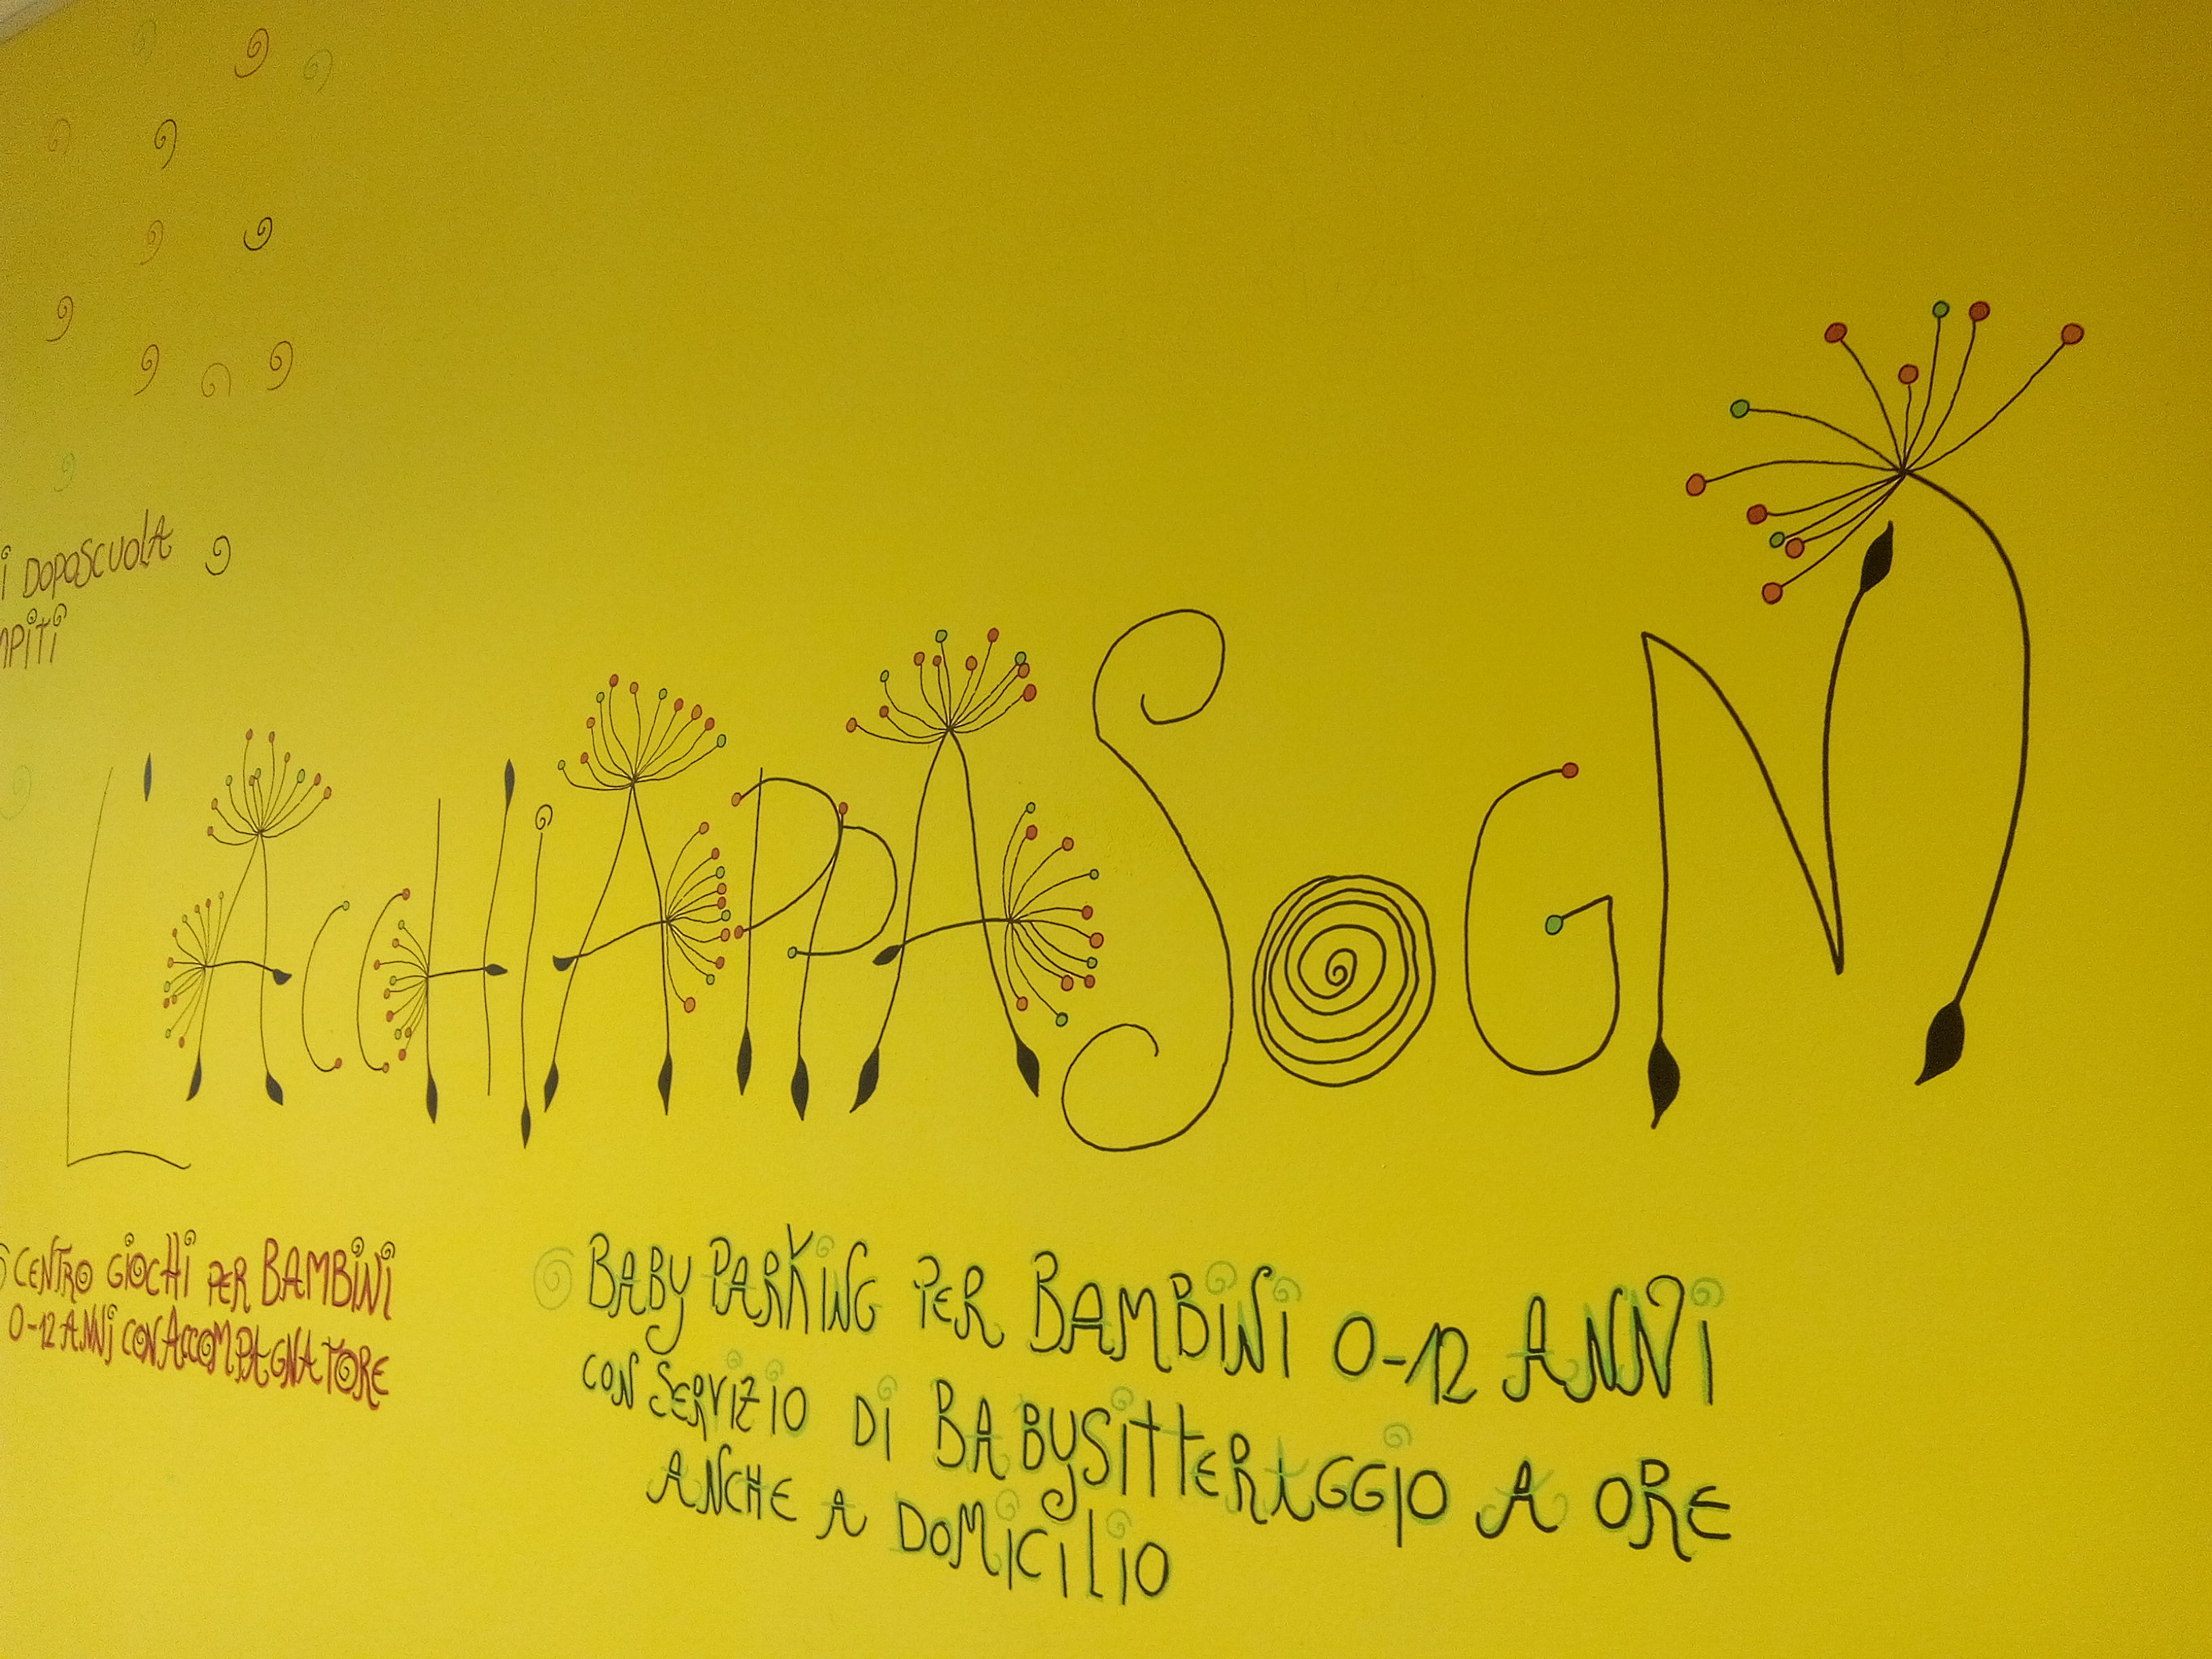 DOPOSCUOLA
L'ACCHIAPPASOGNI
CENTRO GIOCHI PER BAMBINI
0-12 ANNI CON ACCOMPAGNATORE
BABY PARKING PER BAMBINI 0-12 ANNI
CON SERVIZIO DI BABYSITTERAGGIO A ORE
ANCHE A DOMICILIO